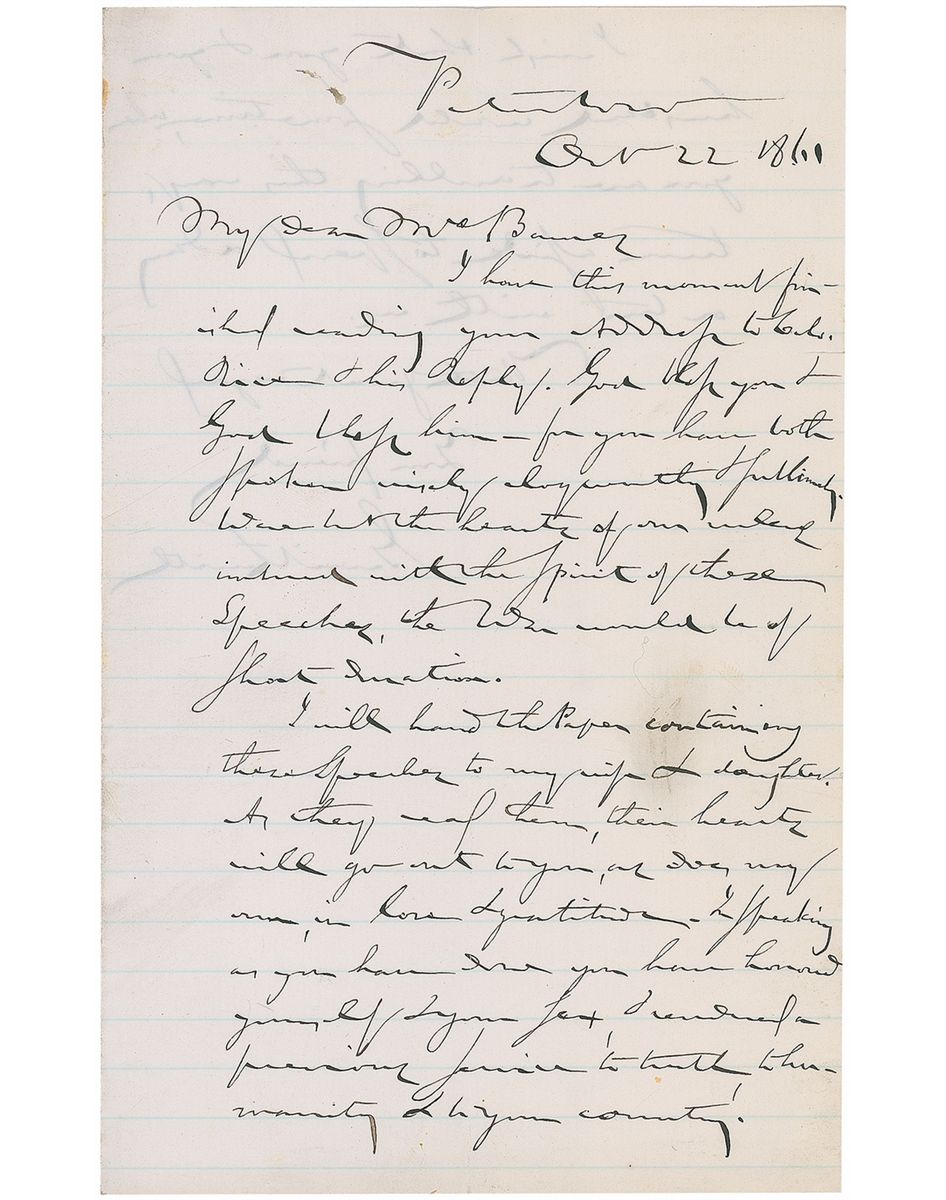 Peterboro
Oct 22 1861
My dear Mrs Barnes
I have this moment fin-
ished reading your Address to Colo.
& his Reply. God bless you &
God bless him – for you have both
spoken wisely eloquently & sublimely.
Were but the hearts of our
imbued with the Spirit of these
Speeches, the War would be of
short duration.
I will hand the Paper containing
these Speeches to my wife & daughter.
As they read them, their hearts
will go out to you, as does my
own, in love & gratitude – In speaking
as you have done you have honored
yourself & your sex, & rendered a
precious service to truth, to hu-
manity & to your country.